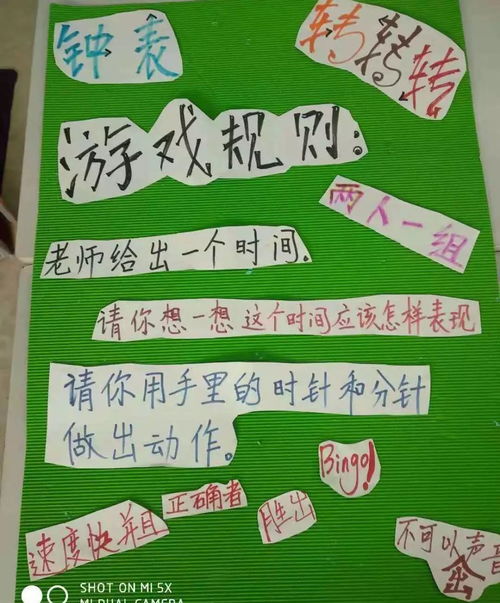 钟表
转转转
游戏规则:
两人一组
老师给出一个时间.
请你想一想这个时间应该怎样表现
请你用手里的时针和分针
做出动作。
Bingo!
速度快并且
正确者
胜出
不可以出声音
SHOT ON MI 5X
MI DUAL CAMERA